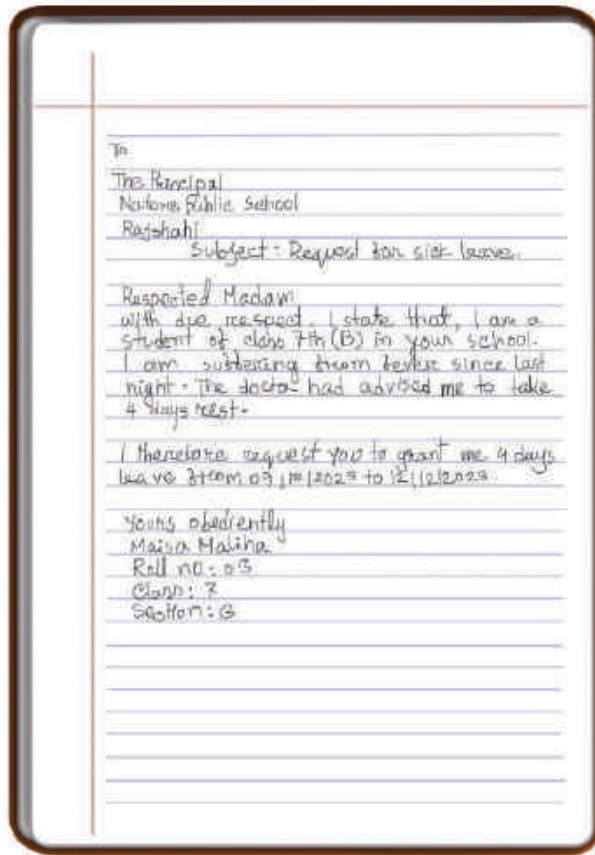 To
The Principal
Natore Public School
Rajshahi
Subject: Request for sick leave.
Respected Madam
with due respect, I state that, I am a
student of class 7th (B) in your school.
I am suffering from fever since last
night. The doctor had advised me to take
4 days rest.
I therefore request you to grant me 4 days
leave from to
Yours obediently
Maisa Maliha
Roll no: 03
Class: 7
Section: